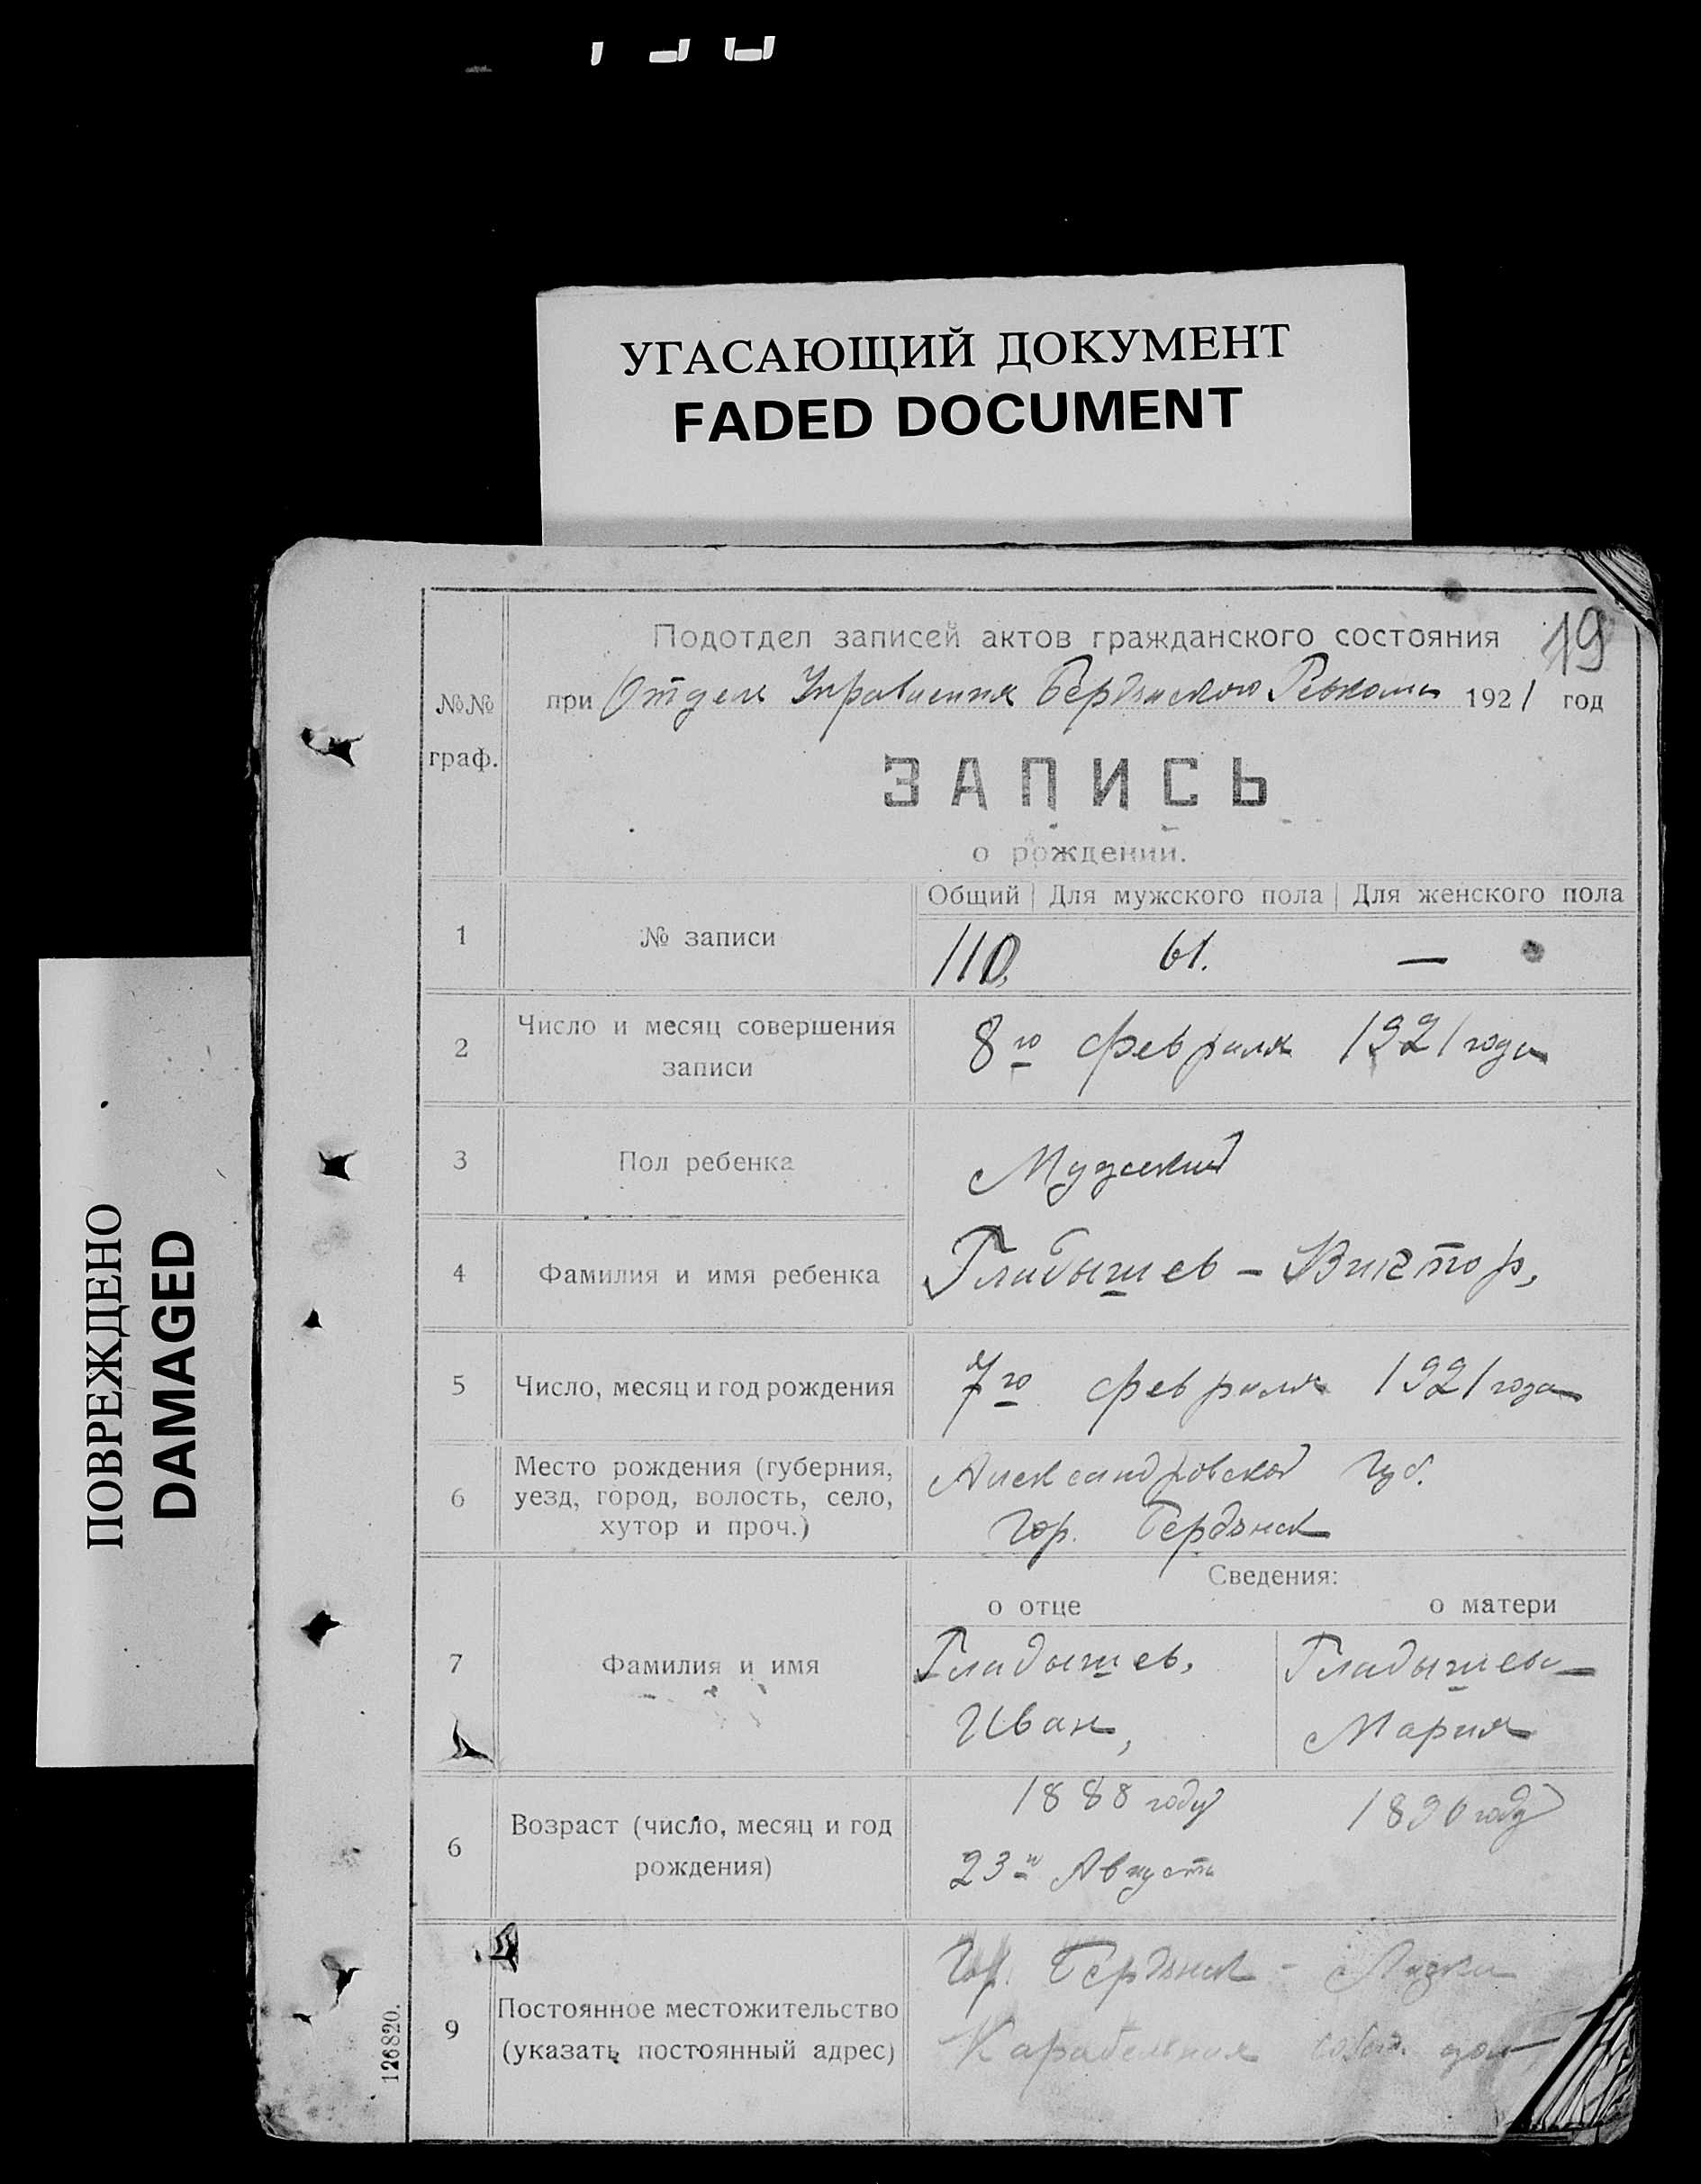 УГАСАЮЩИЙ ДОКУМЕНТ
FADED DOCUMENT
ПОВРЕЖДЕНО
DAMAGED
19
Подотдел записей актов гражданского состояния
№№ граф.
при Отделе Управления Бердянского Ревкома 1921 год
ЗАПИСЬ
о рождении.
Общий Для мужского пола Для женского пола
1 № записи 110. 61. —
2 Число и месяц совершения записи 8го февраля 1921 года
3 Пол ребенка Мужский
4 Фамилия и имя ребенка Гладышев - Виктор,
5 Число, месяц и год рождения 7го февраля 1921 года
6 Место рождения (губерния, уезд, город, волость, село, хутор и проч.) Александровской губ.
гор. Бердянск
Сведения:
о отце о матери
7 Фамилия и имя Гладышев, Гладышева
Иван, Мария
6 Возраст (число, месяц и год рождения) 1888 году 1896 году
23го Августа
9 Постоянное местожительство (указать постоянный адрес) Гор. Бердянск - Лиски
Карабельная собств. дом
126820.